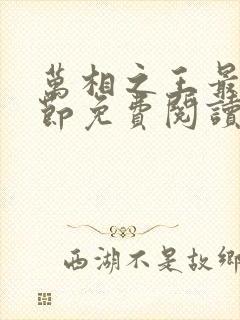 萬相之王最
節免費閱讀
西湖不是故鄉